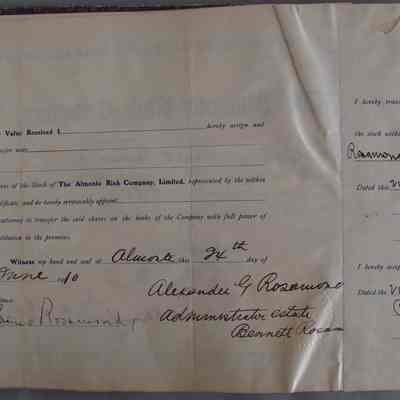 Value Received I, hereby assign and
unto
of the Stock of The Almonte Rink Company, Limited, represented by the within
and do hereby irrevocably appoint
to transfer the said shares on the books of the Company with full power of
in the premises.
Witness my hand and seal at Almonte this 24th day of
June
Rosamond
Alexander G Rosamond
Administrator estate
Bennett
I hereby
the stock
Rosamond
Dated this
I hereby
Dated the